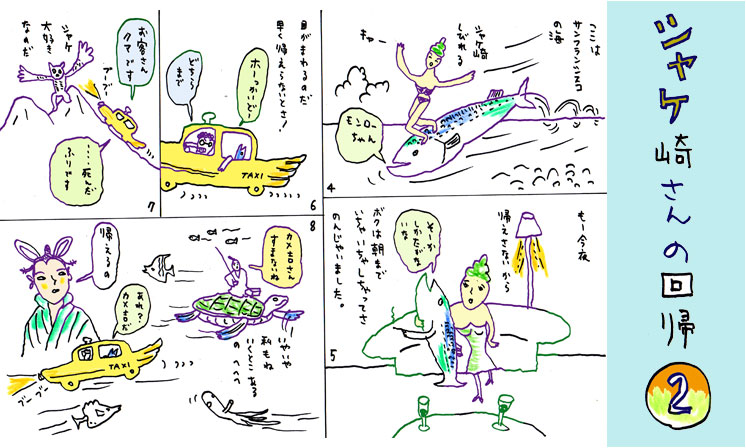 シャケ崎さんの回帰
2
ここは
サンフランシスコ
の海
シャケ崎
しびれる
キャー
モンロー
ちゃん
4
もー今夜
帰えさないから
そーか
しかたがな
いな
ボクは朝まで
いちゃいちゃしちゃってさ
のんじゃいました。
5
目がまわるのだ
早く帰えらないとさ！
ホーっかいど
どちら
まで
TAXI
6
お客さん
クマです
シャケ
大好き
なのだ
ブーブー
TAXI
・・・・死んだ
ふりです
7
8
カメ吉さん
すまないね
いやいや
私もね
いくとこある
の、へへ
帰えるの
あれ？
カメ吉だ
TAXI
ブーブー